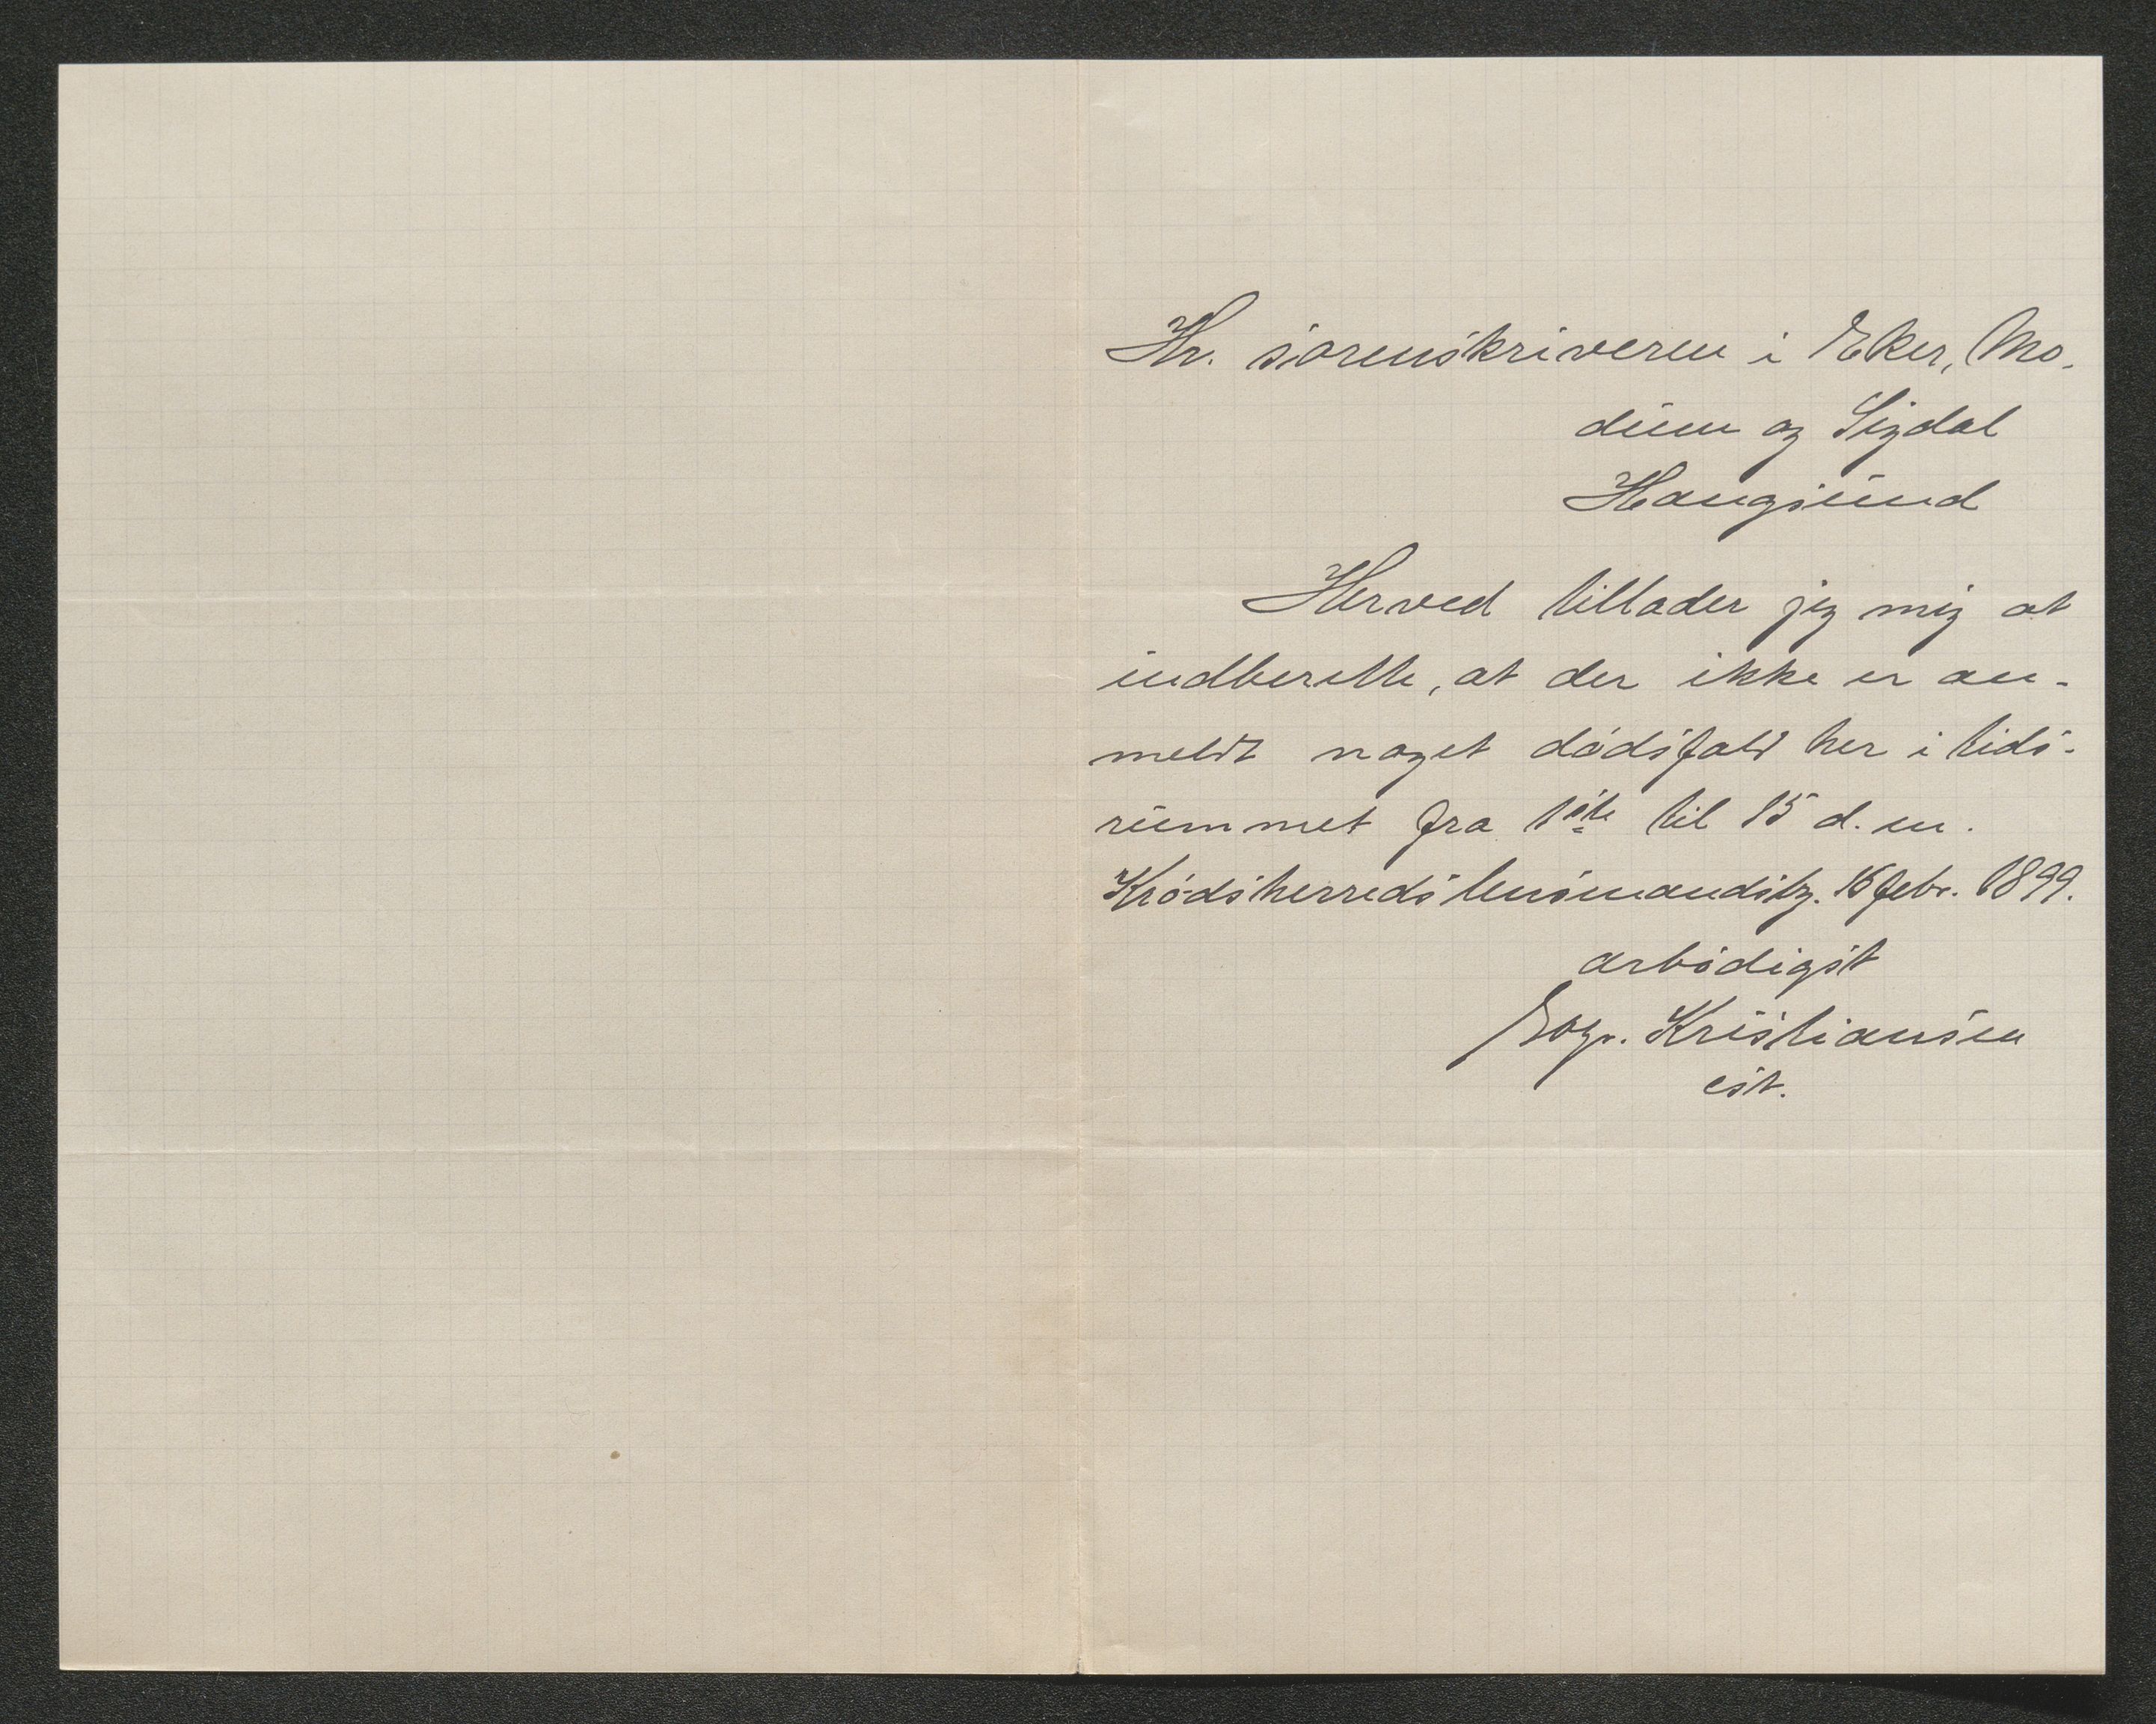 Hr. sorenskriveren i Eker, Mo-
dum og Sigdal
Haugsund
Herved tillader jeg mig at
indberette, at der ikke er an-
meldt noget dødsfald her i tids-
rummet fra 1ste til 15 d. m.
Krødsherreds lensmandsbg. 16 febr. 1899.
ærbødigst
Kristiansen
cst.